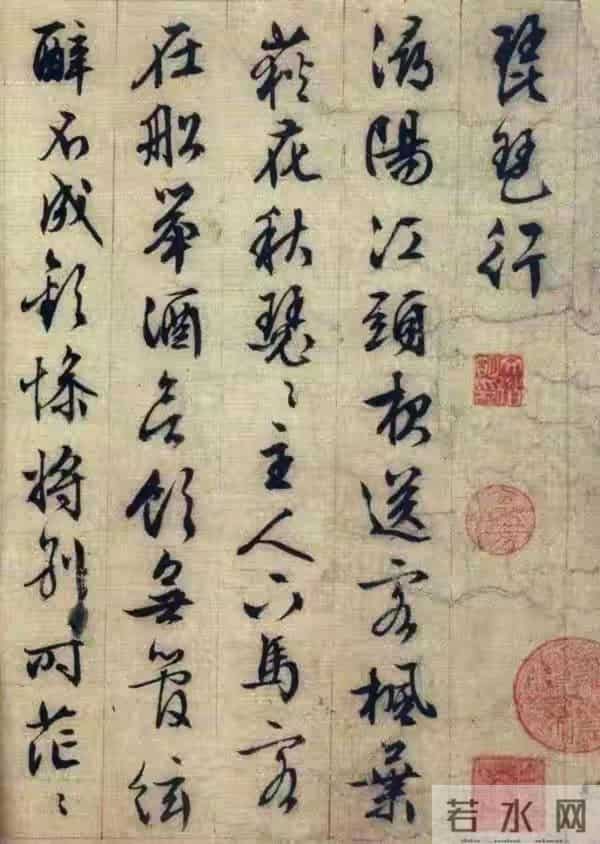 琵琶行
潯陽江頭夜送客楓葉
荻花秋瑟〻主人下馬客
在船舉酒欲飲無管絃
醉不成歡慘將別時茫〻
若水网